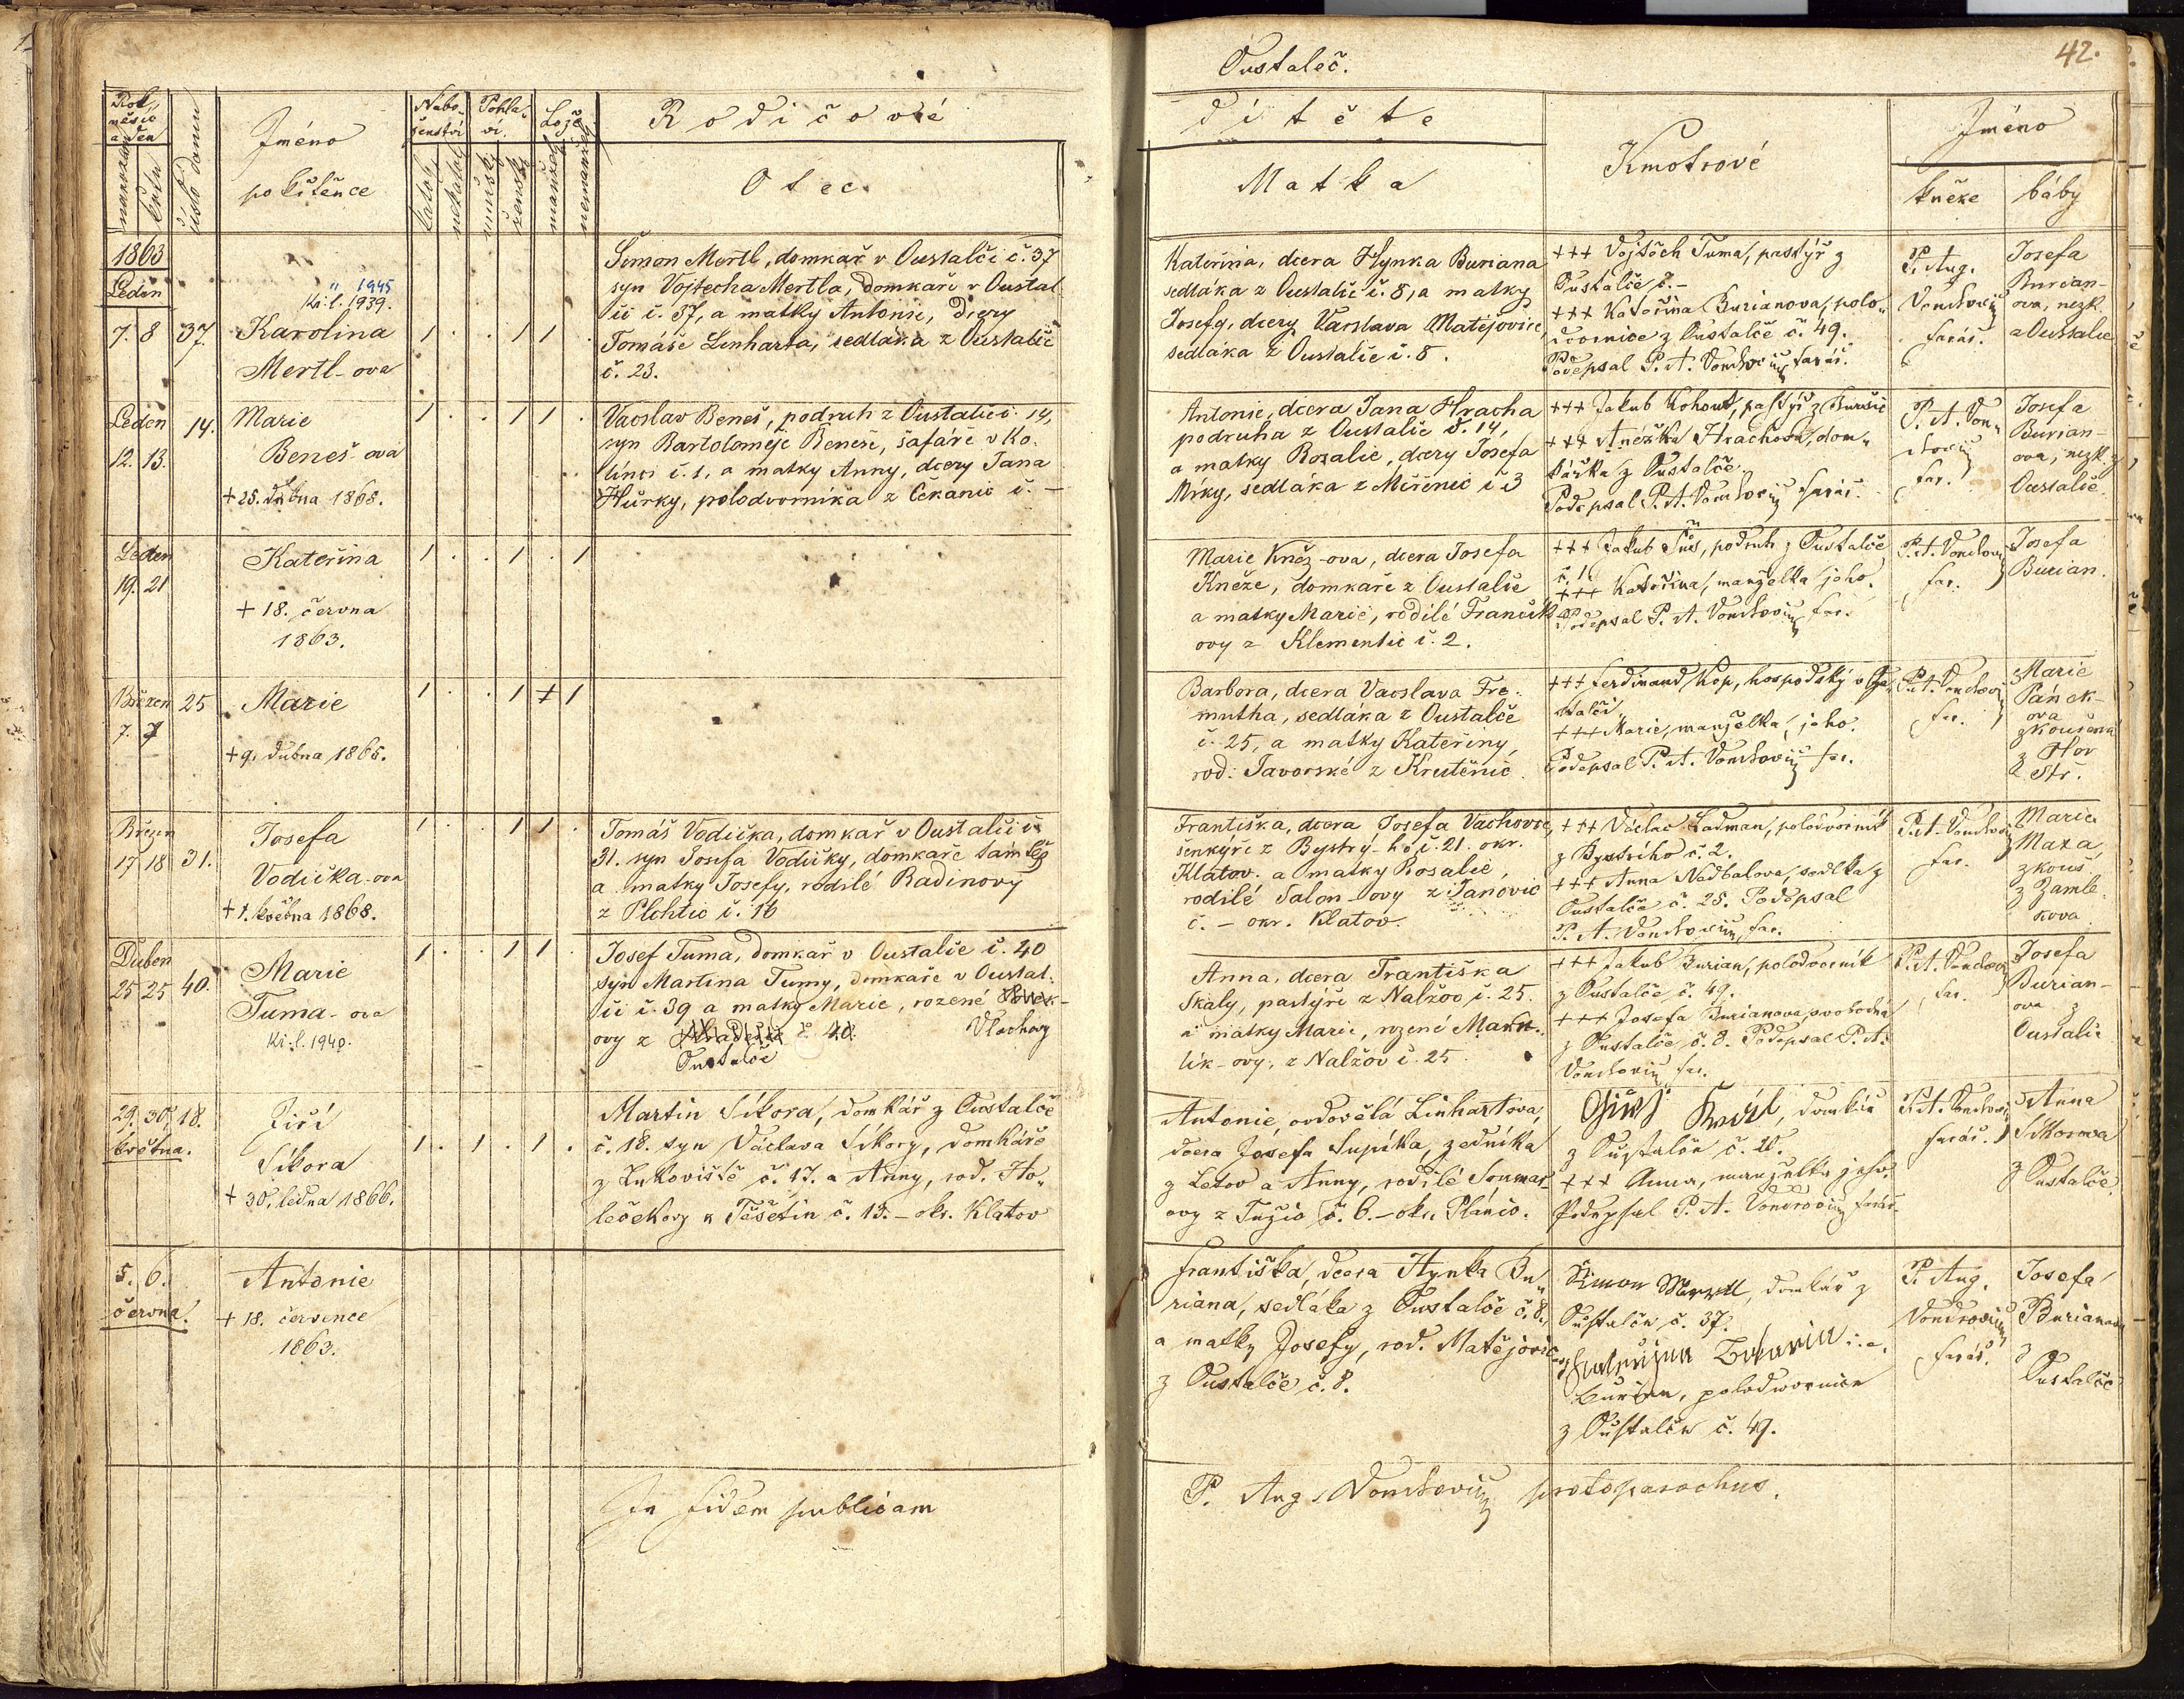 Oustaleč.
42.
Rok, měsíc a den
narození
křtu
číslo domu
Jméno
pokřtěnce
Nabo-
ženství
katol.
nekatol.
Pohla-
ví.
mužské
ženské
Lože
manžel.
nemanžel.
Rodičové
Otec
dítěte
Matka
Kmotrové
Jméno
kněze
báby
1863
Leden
7. 8
37
" 1945
Kř. l. 1939.
Karolina
Mertl-ova
1 . . 1 1 .
Šimon Mertl, domkář v Oustalči č. 37
syn Vojtecha Mertla, domkaře v Oustal-
či č. 37, a matky Antonie, dcery
Tomáše Linharta, sedláka z Oustalče
č. 23.
Kateřina, dcera Hynka Buriana
sedláka z Oustalče č. 8, a matky
Josefy, dcery Vacslava Matějovice,
sedláka z Oustalče č. 8.
+++ Vojtěch Tuma, pastýř z
Oustalče č. –
+++ Kateřina Burianova, polo-
dvornice z Oustalče č. 49.
Podepsal P. A. farář.
P. Aug.
farář.
Josefa
Burian-
ova, nezk.
z Oustalče
Leden
12. 13.
14.
Marie
Beneš-ova
+ 25. dubna 1868.
1 . . 1 1 .
Vacslav Beneš, podruh z Oustalče č. 14,
syn Bartoloměje Beneše, šafáře v Ko-
línci č. 1, a matky Anny, dcery Jana
Hůrky, polodvorníka z Čekanic č. –
Antonie, dcera Jana Hracha
podruha z Oustalče č. 14,
a matky Rozalie, dcery Josefa
Míky, sedláka z Miřenic č 3
+++ Jakub Kohout, pastýř z
+++ Anežka Hrachova, dom-
kářka z Oustalče.
Podepsal P. A. farář.
P. A.
far.
Josefa
Burian-
ova, nezk. z
Oustalče.
Leden
19. 21
Kateřina
+ 18. června
1863.
1 . . 1 . 1
Marie Kněz-ova, dcera Josefa
Kněze, domkaře z Oustalče
a matky Marie, rodilé Frančík-
ovy z Klementic č. 2.
+++ Jakub podruh z Oustalče
č. 1.
+++ Kateřina, manželka jeho.
Podepsal P. A. far.
P. A.
far.
Josefa
Burian.
Březen
7. 7
25
Marie
+ 9. dubna 1865.
1 . . 1 + 1
Barbora, dcera Vacslava Fre-
mutha, sedláka z Oustalče
č. 25, a matky Kateřiny,
rod. Javorské z Krutěnic.
+++ Ferdinand Kop, hospodský v Ou-
stalči.
+++ Marie, manželka jeho.
Podepsal P. A. far.
P. A.
far.
Marie
Pánek-
ova
zkoušená
z Hor
Stř.
Březen
17 18
31.
Josefa
Vodička-ova
+ 1. května 1868.
1 . . 1 1 .
Tomáš Vodička, domkař v Oustalči č.
31. syn Josefa Vodičky, domkaře tamtéž
a matky Josefy, rodilé Radinovy
z Plchtic č. 16
Františka, dcera Josefa Vachovce,
šenkýře z Bystrý-ho č. 21. okr.
Klatov. a matky Rosalie,
rodilé Salon-ovy z Janovic
č. – okr. Klatov.
+++ Václav Ladman, polodvorník
z Bystrého č. 2.
+++ Anna Nadbalova, sedlka z
Oustalče č. 25. Podepsal
P. A. far.
P. A.
far.
Marie
Maxa,
zkouš.
z Zamle-
kova.
Duben
25 25
40.
Marie
Tuma-ova
Kř. l. 1940.
1 . . 1 1 .
Josef Tuma, domkař v Oustalče č. 40
syn Martina Tumy, domkaře v Oustal-
či č. 39 a matky Marie, rozené
ovy z č. 40. Vlachovy
Oustalče
Anna, dcera Františka
Skaly, pastýře z Nalžov č. 25.
a matky Marie, rozené
lík-ovy, z Nalžov č. 25.
+++ Jakub Burian, polodvorník
z Oustalče č. 49.
+++ Josefa Burianova svobodná
z Oustalče č. 8. Podepsal P. A.
far.
P. A.
far.
Josefa
Burian-
ova z
Oustalče
29. 30.
května.
18.
Jiří
Síkora
+ 30. ledna 1866.
1 . 1 . 1 .
Martin Síkora, domkář z Oustalče
č. 18. syn Václava Síkory, domkáře
z Lukoviště č. 17. a Anny, rod. Ho-
lečekovy z Těšetin č. 13. – okr. Klatov
Antonie, ovdovělá Linhartova,
dcera Josefa Supíka, zedníka
z Letov a Anny, rodilé Soumar-
ovy z Tužic č. 6. – okr. Plánic.
domkář
z Oustalče č. 20.
+++ Anna, manželka jeho.
Podepsal P. A. farář.
P. A.
farář.
Anna
Síkorova
z Oustalče.
5. 6.
června.
Antonie
+ 18. července
1863.
Františka, dcera Hynka Bu-
riana, sedláka z Oustalče č. 8.,
a matky Josefy, rod. Matějovic
z Oustalče č. 8.
Šimon domkář z
Oustalče č. 37.
Burian, polodvornice
z Oustalče č. 49.
P. Aug.
farář.
Josefa
Burianova
z
Oustalče
In fidem publicam
P. Aug. protoparochus.